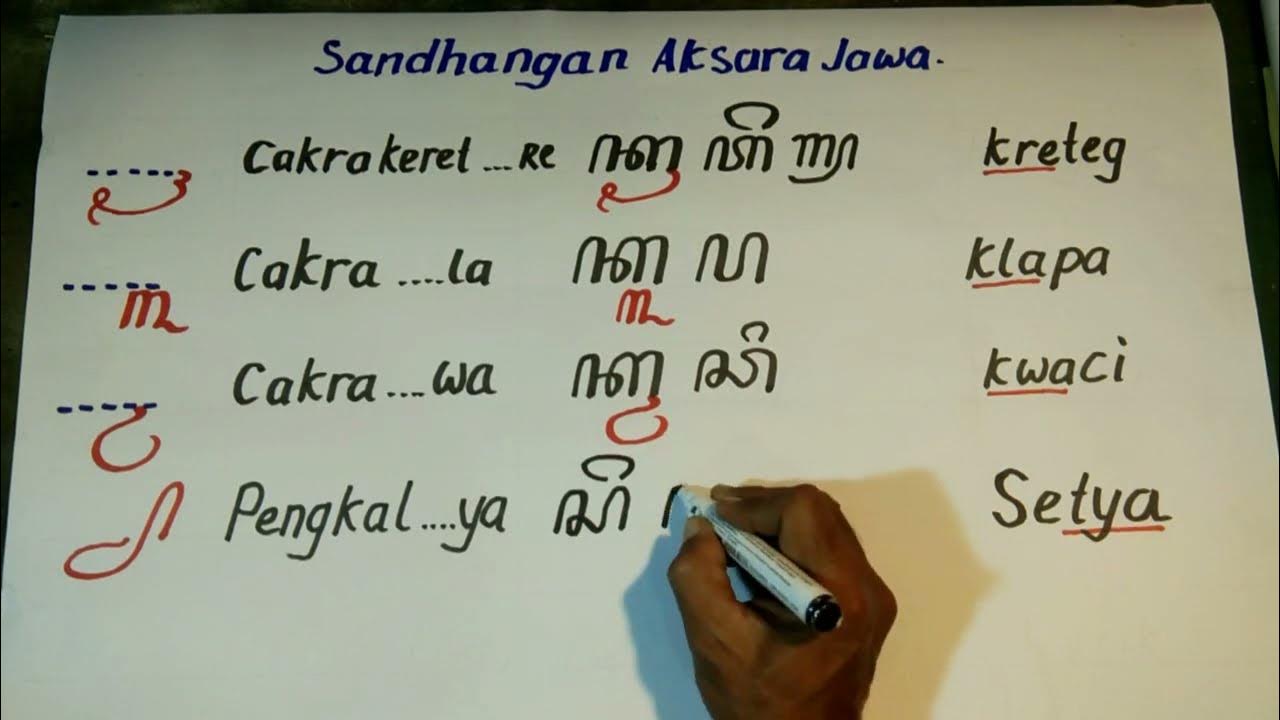 Sandhangan Aksara Jawa.
-----ꦽ Cakra keret ...Re ꦏꦽ ꦠꦼ ꦒ꧀ kreteg
-----꧀ꦭ Cakra ....la ꦏ꧀ꦭ ꦥ klapa
-----꧀ꦮ Cakra ...wa ꦏ꧀ꦮ ꦕꦶ kwaci
ꦾ Pengkal ....ya ꦱꦼ Setya